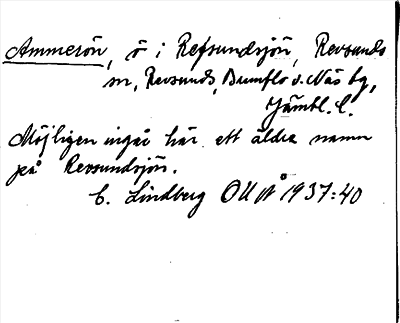 Ammerön, ö i Refsundsjön, Revsunds
sn, Revsunds, Brunflo o. Näs tg,
Jämtl. l.
Möjligen ingår här ett äldre namn
på Revsundsjön.
C. Lindberg OUÅ 1937:40